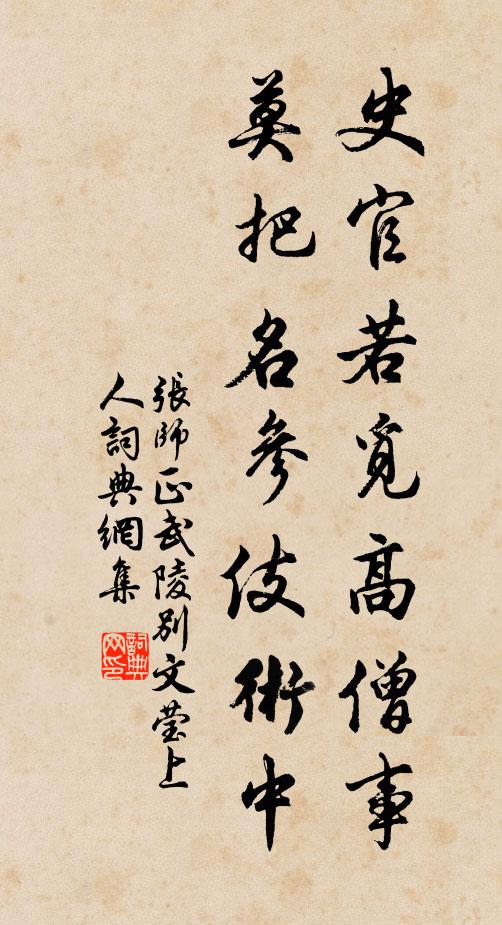 史官若覓高僧事
莫把名參伎術中
張師正武陵別文瑩上
人詞典網集
詞典網印